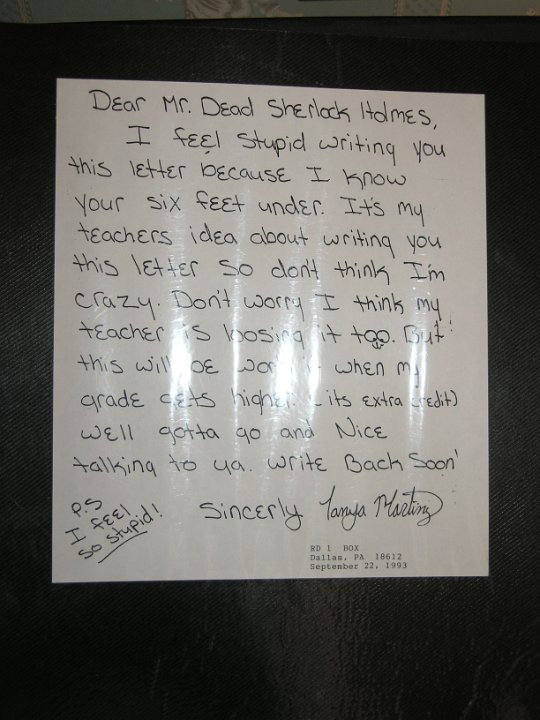 Dear Mr. Dead Sherlock Holmes,
I feel stupid writing you
this letter because I know
your six feet under. It's my
teachers idea about writing you
this letter so don't think I'm
crazy. Don't worry I think my
teacher is loosing it too. But
this will be when my
grade gets higher. (its extra credit)
well gotta go and Nice
talking to ya. write Back Soon!
P.S
I feel
so stupid!
Sincerly Tanya Martinz
RD 1 BOX
Dallas, PA 18612
September 22, 1993